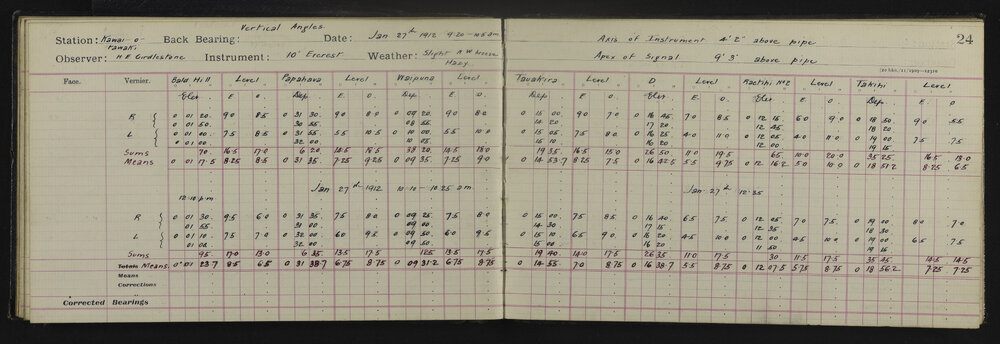 Vertical Angles
Station: Kawai-o-rawaki Back Bearing: Date: Jan 27th 1912 9·20 - 10·5 am
Observer: H E Girdlestone Instrument: 10" Everest Weather: Slight N.W breeze Hazy
Axis of Instrument 4' 2" above pipe
Apex of Signal 9' 3" above pipe
24
Face. Vernier. Bald Hill Level Papahara Level Waipuna Level Tauakira Level D Level Raetihi No 2 Level Takihi Level
Elev. E. O. Dep. E. O. Dep. E. O. Dep E. O. Elev E. O. Elev. E. O. Dep. E. O
R 0 01 20. 9·0 8·5 0 31 30 9·0 8·0 0 09 20. 9·0 8·0 0 15 00 9·0 7·0 0 16 45 7·0 8·5 0 12 15 9·0 10·0 0 18 50 9·0 5·5
0 01 50. 30 55 08 55 14 20. 17 20 12 45 18 20
L 0 01 00. 7·5 8·5 0 31 55. 5·5 10·5 0 10 00 5·5 10·0 0 15 05. 7·5 8·0 0 16 25 4·0 11·0 0 12 05 4·0 8·0 0 19 00 7·5 7·5
0 01 00. 32 00 10 05 15 10. 16 20 12 00 19 15
Sums 70 16·5 17·0 6 20 14·5 18·5 38 20. 14·5 18·0 19 35 16·5 15·0 26 50 11·0 19·5 65 10·0 20·0 35 25 16·5 13·0
Means 0 01 17·5 8·25 8·5 0 31 35. 7·25 9·25 0 09 35. 7·25 9·0 0 14 53·7 8·25 7·5 0 16 42·5 5·5 9·75 0 12 16·2 5·0 10·0 0 18 51·2 8·25 6·5
Jan 27th 1912 10·10 - 10·25 am Jan 27th 12·35
12·10 p.m
R 0 01 30. 9·5 6·0 0 31 35 7·5 8·0 0 09 25. 7·5 8·0 0 15 00 7·5 8·5 0 16 40 6·5 7·5 0 12 05 7·0 7·5 0 19 00 8·0 7·0
01 55. 31 00 09 00. 14 30. 17 15 12 35 18 30
L 0 01 10. 7·5 7·0 0 32 00 6·0 9·5 0 09 50 6·0 9·5 0 15 10 6·5 9·0 0 16 20 4·5 10·0 0 12 00 4·5 10·0 0 19 00 6·5 7·5
01 00. 32 00 09 50. 15 00. 16 20 11 50 19 15
Sums 95 17·0 13·0 6 35 13·5 17·5 125 13·5 17·5 19 40 14·0 17·5 26 35 11·0 17·5 30 11·5 17·5 35 45 14·5 14·5
Totals Means 0 01 23·7 8·5 6·5 0 31 38·7 6·75 8·75 0 09 31·2 6·75 8·75 0 14 55. 7·0 8·75 0 16 38·7 5·5 8·75 0 12 07·5 5·75 8·75 0 18 56·2 7·25 7·25
Means
Corrections
Corrected Bearings